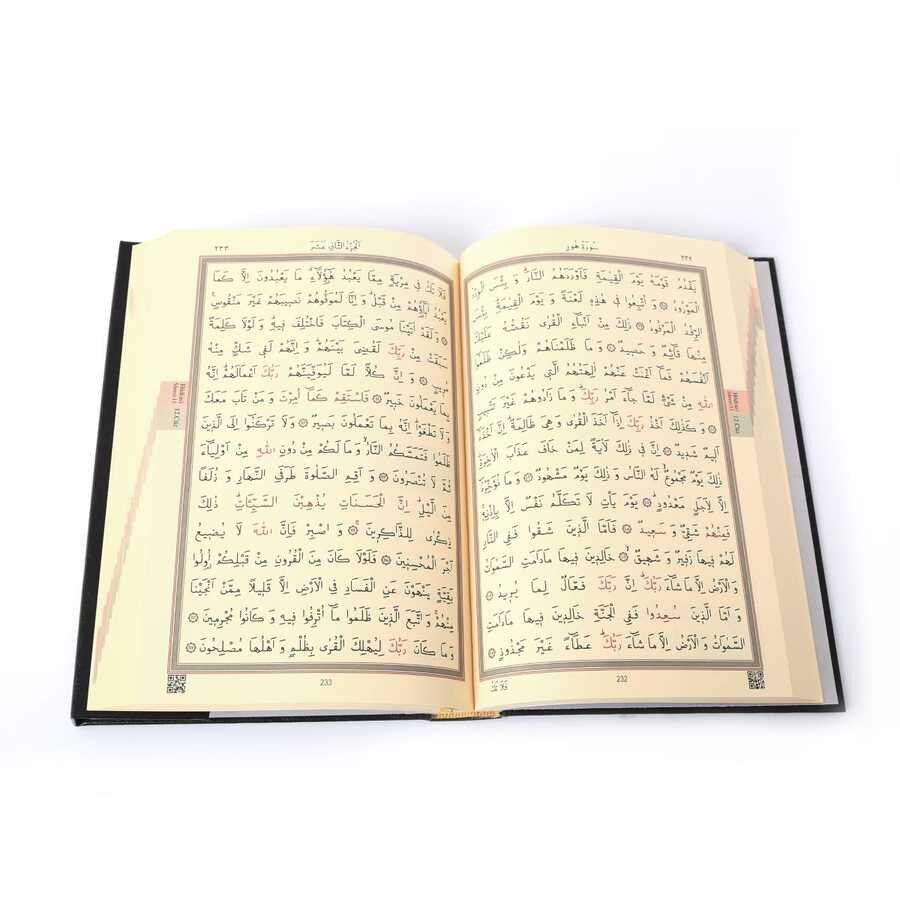 سُورَةُ هُودٍ ٢٣٢
يَقْدُمُ قَوْمَهُ يَوْمَ الْقِيٰمَةِ فَاَوْرَدَهُمُ النَّارَ وَ بِئْسَ الْوِرْدُ
الْمَوْرُودُ وَ اُتْبِعُوا فِي هٰذِهِ لَعْنَةً وَ يَوْمَ الْقِيٰمَةِ بِئْسَ
الرِّفْدُ الْمَرْفُودُ ذٰلِكَ مِنْ اَنْبَٓاءِ الْقُرٰى نَقُصُّهُ عَلَيْكَ
مِنْهَا قَٓائِمٌ وَ حَصِيدٌ وَ مَا ظَلَمْنَاهُمْ وَلٰكِنْ ظَلَمُٓوا
اَنْفُسَهُمْ فَمَٓا اَغْنَتْ عَنْهُمْ اٰلِهَتُهُمُ الَّتِي يَدْعُونَ مِنْ دُونِ
اللّٰهِ مِنْ شَيْءٍ لَمَّا جَٓاءَ اَمْرُ رَبِّكَ وَ مَا زَادُوهُمْ غَيْرَ تَتْبِيبٍ
وَ كَذٰلِكَ اَخْذُ رَبِّكَ اِذَٓا اَخَذَ الْقُرٰى وَ هِيَ ظَالِمَةٌ اِنَّ اَخْذَهُٓ
اَلِيمٌ شَدِيدٌ اِنَّ فِي ذٰلِكَ لَاٰيَةً لِمَنْ خَافَ عَذَابَ الْاٰخِرَةِ
ذٰلِكَ يَوْمٌ مَجْمُوعٌ لَهُ النَّاسُ وَ ذٰلِكَ يَوْمٌ مَشْهُودٌ وَ مَا نُؤَخِّرُهُٓ
اِلَّا لِاَجَلٍ مَعْدُودٍ يَوْمَ يَأْتِ لَا تَكَلَّمُ نَفْسٌ اِلَّا بِاِذْنِهِ
فَمِنْهُمْ شَقِيٌّ وَ سَعِيدٌ فَاَمَّا الَّذِينَ شَقُوا فَفِي النَّارِ
لَهُمْ فِيهَا زَفِيرٌ وَ شَهِيقٌ خَالِدِينَ فِيهَا مَا دَامَتِ السَّمٰوَاتُ
وَ الْاَرْضُ اِلَّا مَا شَٓاءَ رَبُّكَ اِنَّ رَبَّكَ فَعَّالٌ لِمَا يُرِيدُ
وَ اَمَّا الَّذِينَ سُعِدُوا فَفِي الْجَنَّةِ خَالِدِينَ فِيهَا مَا دَامَتِ
السَّمٰوَاتُ وَ الْاَرْضُ اِلَّا مَا شَٓاءَ رَبُّكَ عَطَٓاءً غَيْرَ مَجْذُوذٍ
فَلَا تَكُ
232
12.Cüz
اَلْجُزْءُ الثَّانِي عَشَرَ ٢٣٣
فَلَا تَكُ فِي مِرْيَةٍ مِمَّا يَعْبُدُ هٰٓؤُلَٓاءِ مَا يَعْبُدُونَ اِلَّا كَمَا
يَعْبُدُ اٰبَٓاؤُهُمْ مِنْ قَبْلُ وَ اِنَّا لَمُوَفُّوهُمْ نَصِيبَهُمْ غَيْرَ مَنْقُوصٍ
وَ لَقَدْ اٰتَيْنَا مُوسَى الْكِتَابَ فَاخْتُلِفَ فِيهِ وَ لَوْلَا كَلِمَةٌ
سَبَقَتْ مِنْ رَبِّكَ لَقُضِيَ بَيْنَهُمْ وَ اِنَّهُمْ لَفِي شَكٍّ مِنْهُ
مُرِيبٍ وَ اِنَّ كُلًّا لَمَّا لَيُوَفِّيَنَّهُمْ رَبُّكَ اَعْمَالَهُمْ اِنَّهُ
بِمَا يَعْمَلُونَ خَبِيرٌ فَاسْتَقِمْ كَمَٓا اُمِرْتَ وَ مَنْ تَابَ مَعَكَ
وَ لَا تَطْغَوْا اِنَّهُ بِمَا تَعْمَلُونَ بَصِيرٌ وَ لَا تَرْكَنُٓوا اِلَى الَّذِينَ
ظَلَمُوا فَتَمَسَّكُمُ النَّارُ وَ مَا لَكُمْ مِنْ دُونِ اللّٰهِ مِنْ اَوْلِيَٓاءَ
ثُمَّ لَا تُنْصَرُونَ وَ اَقِمِ الصَّلٰوةَ طَرَفَيِ النَّهَارِ وَ زُلَفًا
مِنَ الَّيْلِ اِنَّ الْحَسَنَاتِ يُذْهِبْنَ السَّيِّـَٔاتِ ذٰلِكَ
ذِكْرٰى لِلذَّاكِرِينَ وَ اصْبِرْ فَاِنَّ اللّٰهَ لَا يُضِيعُ
اَجْرَ الْمُحْسِنِينَ فَلَوْلَا كَانَ مِنَ الْقُرُونِ مِنْ قَبْلِكُمْ اُو۬لُوا
بَقِيَّةٍ يَنْهَوْنَ عَنِ الْفَسَادِ فِي الْاَرْضِ اِلَّا قَلِيلًا مِمَّنْ اَنْجَيْنَا
مِنْهُمْ وَ اتَّبَعَ الَّذِينَ ظَلَمُوا مَٓا اُتْرِفُوا فِيهِ وَ كَانُوا مُجْرِمِينَ
وَ مَا كَانَ رَبُّكَ لِيُهْلِكَ الْقُرٰى بِظُلْمٍ وَ اَهْلُهَا مُصْلِحُونَ
233
12.Cüz